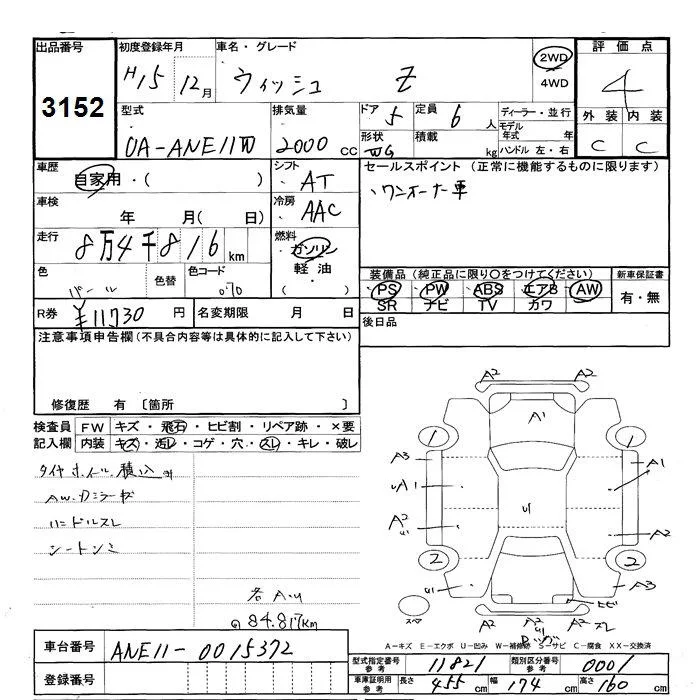 出品番号
3152
初度登録年月
H15 12月
車名・グレード
ウィッシュ Z
2WD
4WD
評価点
4
外装 内装
C C
型式
UA-ANE11W
排気量
2000 CC
ドア 5
形状 WG
定員 6 人
積載 kg
ディーラー・並行
モデル年式 年
ハンドル 左・右
車歴
自家用・( )
シフト
AT
セールスポイント (正常に機能するものに限ります)
ワンオーナー車
車検
年 月( 日)
冷房
AAC
走行
8万4千816km
燃料
ガソリン
軽油
・( )
色
パール
色替
色コード
070
装備品 (純正品に限り○をつけてください)
PS PW ABS エアB AW
SR ナビ TV カワ
新車保証書
有・無
R券
¥11730 円
名変期限 月 日
後日品
注意事項申告欄(不具合内容等は具体的に記入して下さい)
修復歴 有 〔箇所 〕
検査員 FW キズ・飛石・ヒビ割・リペア跡・×要
記入欄 内装 キズ・汚レ・コゲ・穴・スレ・キレ・破レ
タイヤホイル積込
AW.カミラーキズ
ハンドルスレ
シートシミ
各AU
84.817km
A2 A2
A1
1 1
A3 A1
A1
A2 U A2
2 2
A3
ヒビ
A2 A2 スレ
A-キズ E-エクボ U-凹み W-補修跡 S-サビ C-腐食 XX-交換済
車台番号
ANE11-0015372
登録番号
型式指定番号 参考
11821
類別区分番号 参考
0001
車庫証明用 参考
長さ 455cm 幅 174cm 高さ 160cm